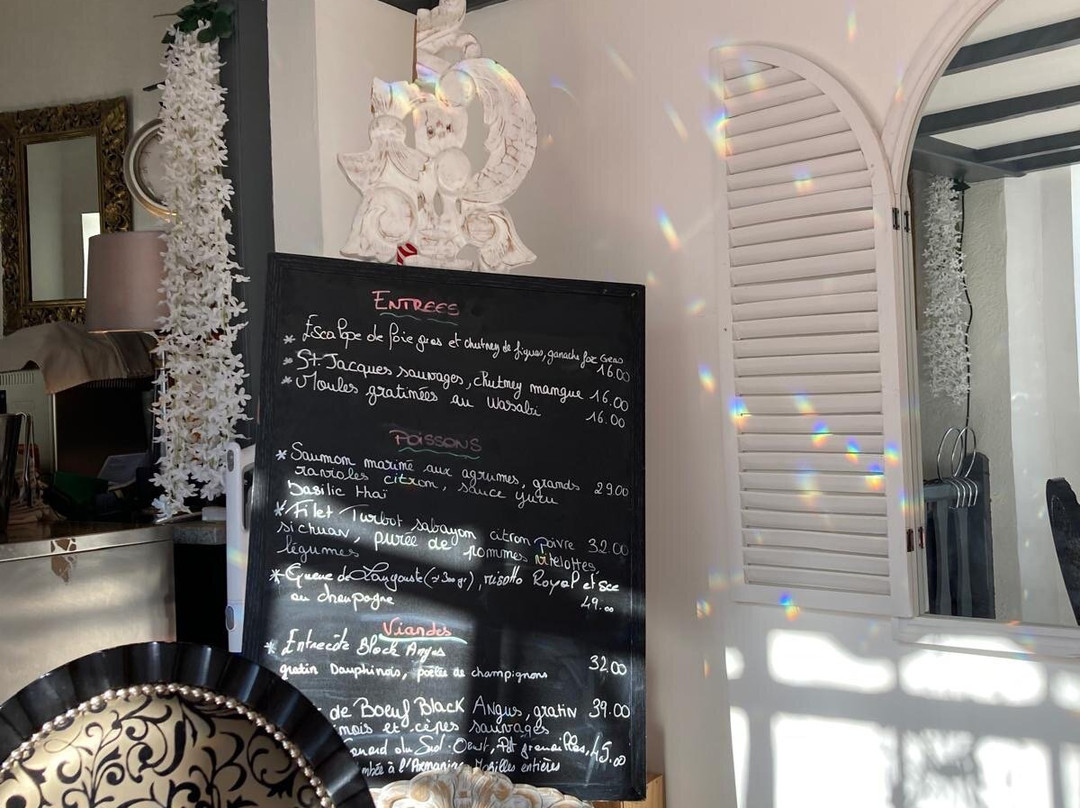 ENTREES
* Escalope de foie gras et chutney de figues, ganache foie Gras
16.00
* St. Jacques sauvages, chutney mangue 16.00
* Moules gratinées au Wasabi 16.00
POISSONS
* Saumon mariné aux agrumes, grands
ravioles citron, sauce yuzu 29.00
Basilic thaï
* Filet Turbot sabayon citron poivre 32.00
sichuan, purée de pommes vitelottes,
légumes
* Queue de Langouste (± 300 gr), risotto Royal et sce
au champagne 49.00
Viandes
* Entrecôte Black Angus
gratin Dauphinois, poêlée de champignons 32.00
de Boeuf Black Angus, gratin 39.00
nois et cèpes sauvages
anard du Sud-Ouest, Pt grenailles, 45.00
mbée à l'Armagnac Morilles entières